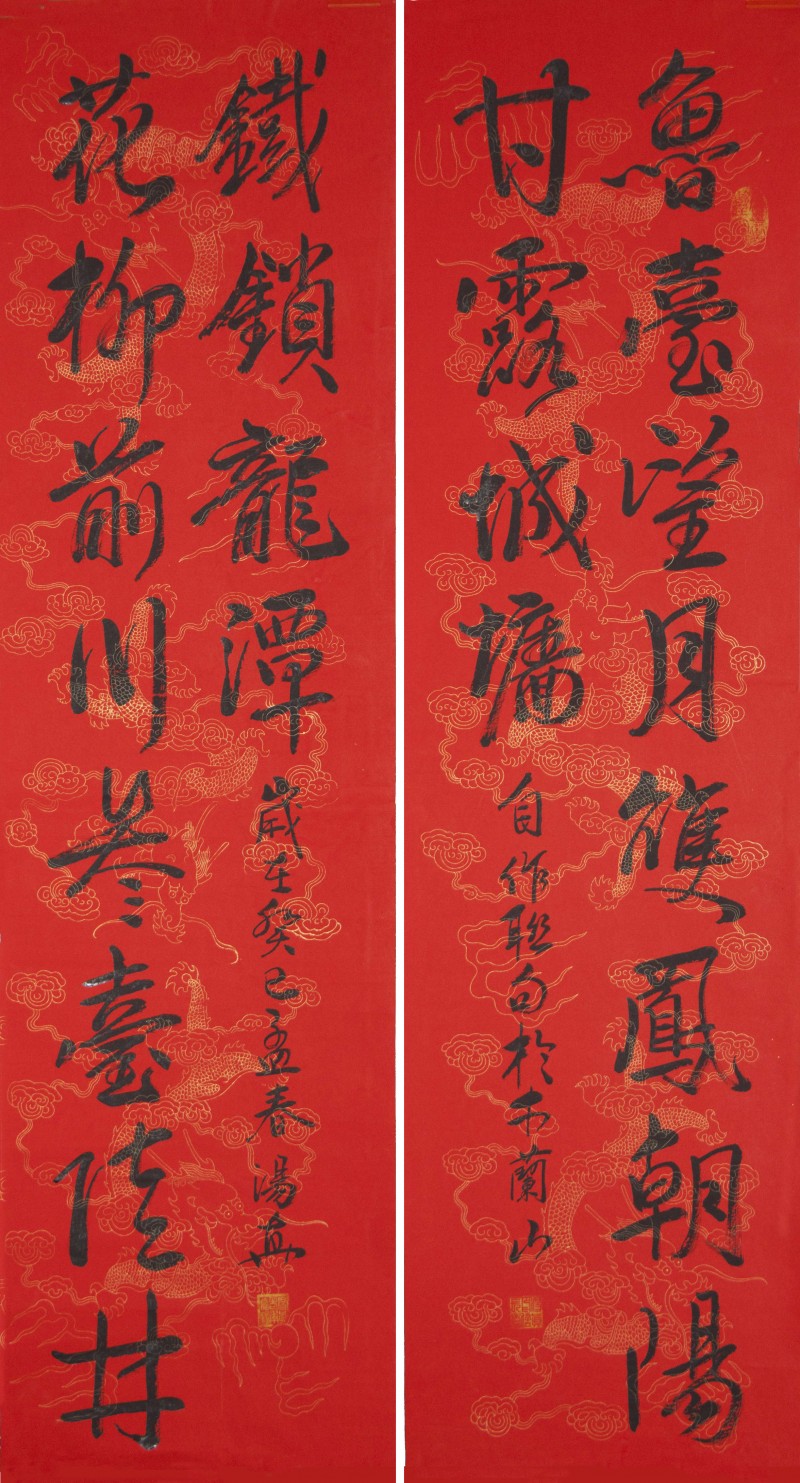 魯臺望月雙鳳朝陽
甘露城墉
自作聯句於木蘭山
花柳前川叁臺陸井
鐵鎖龍潭
歲在癸巳孟春湯